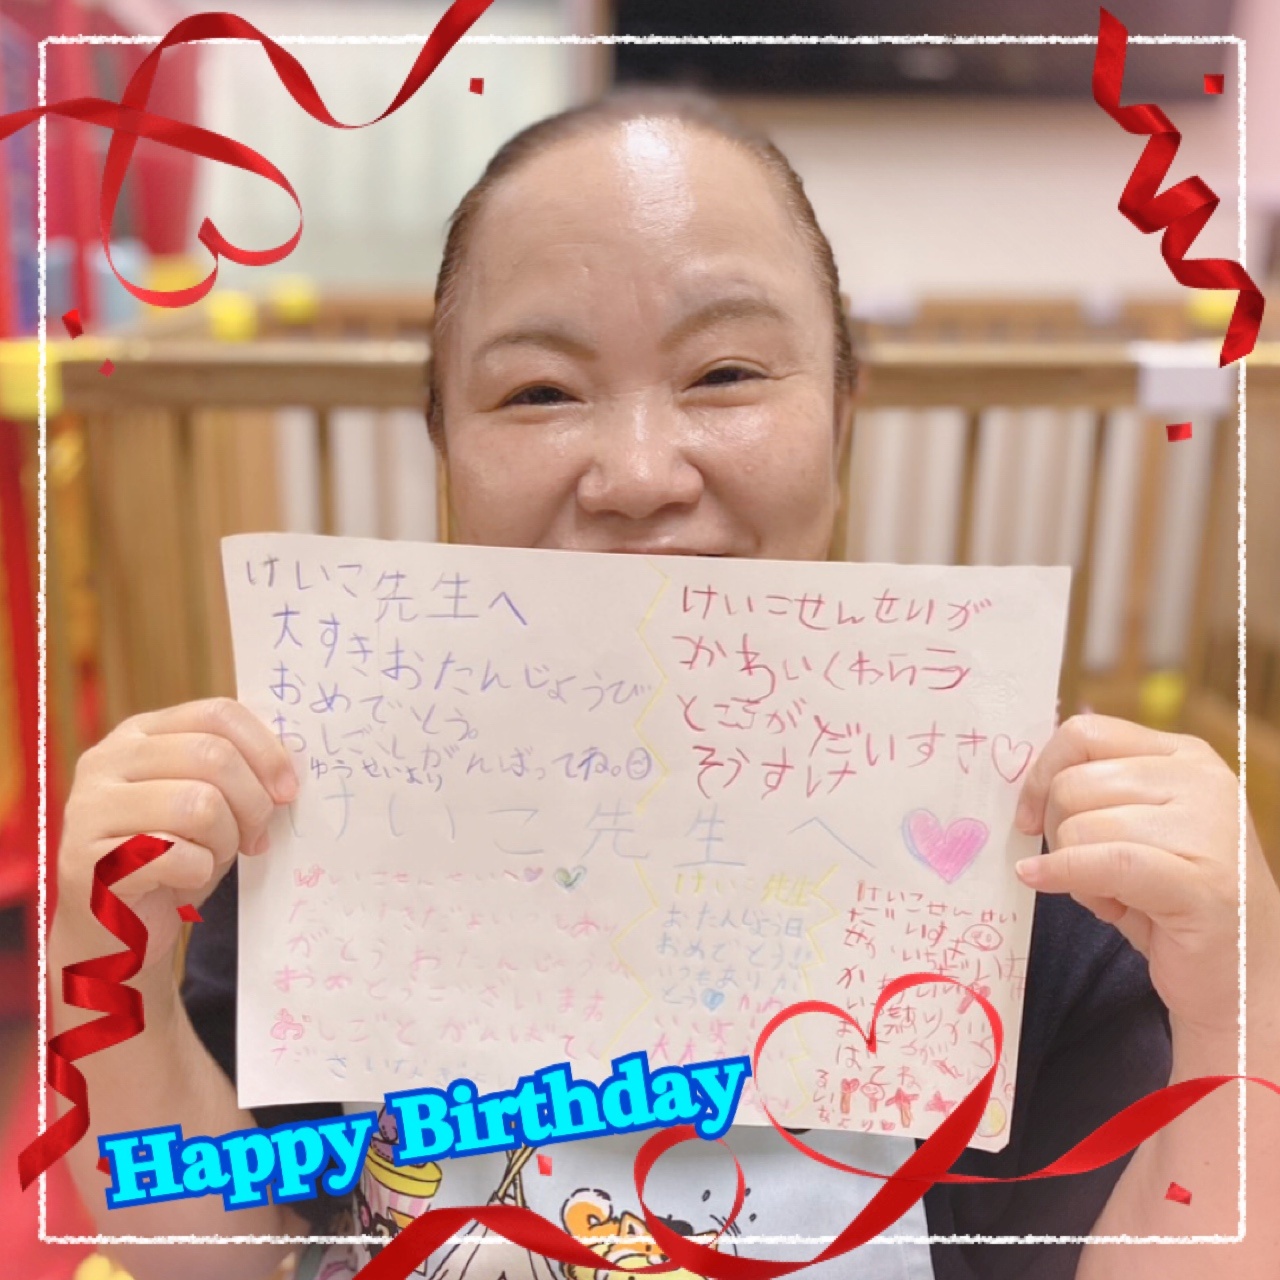 けいこ先生へ
大すきおたんじょうび
おめでとう。
おしごとがんばってね。
ゆうせいより
けいこせんせいが
かわいくわらう
ところがだいすき♡
そうすけ
けいこ先生へ
けいこせんせいへ
だいすきだよいつもあり
がとうおたんじょうび
おめでとうございます
おしごとがんばてく
ださい
けいこ先生
おたんじょう日
おめでとう
いつもありが
とう
けいこせんせい
だいすき
せかいいち
かわいい
Happy Birthday